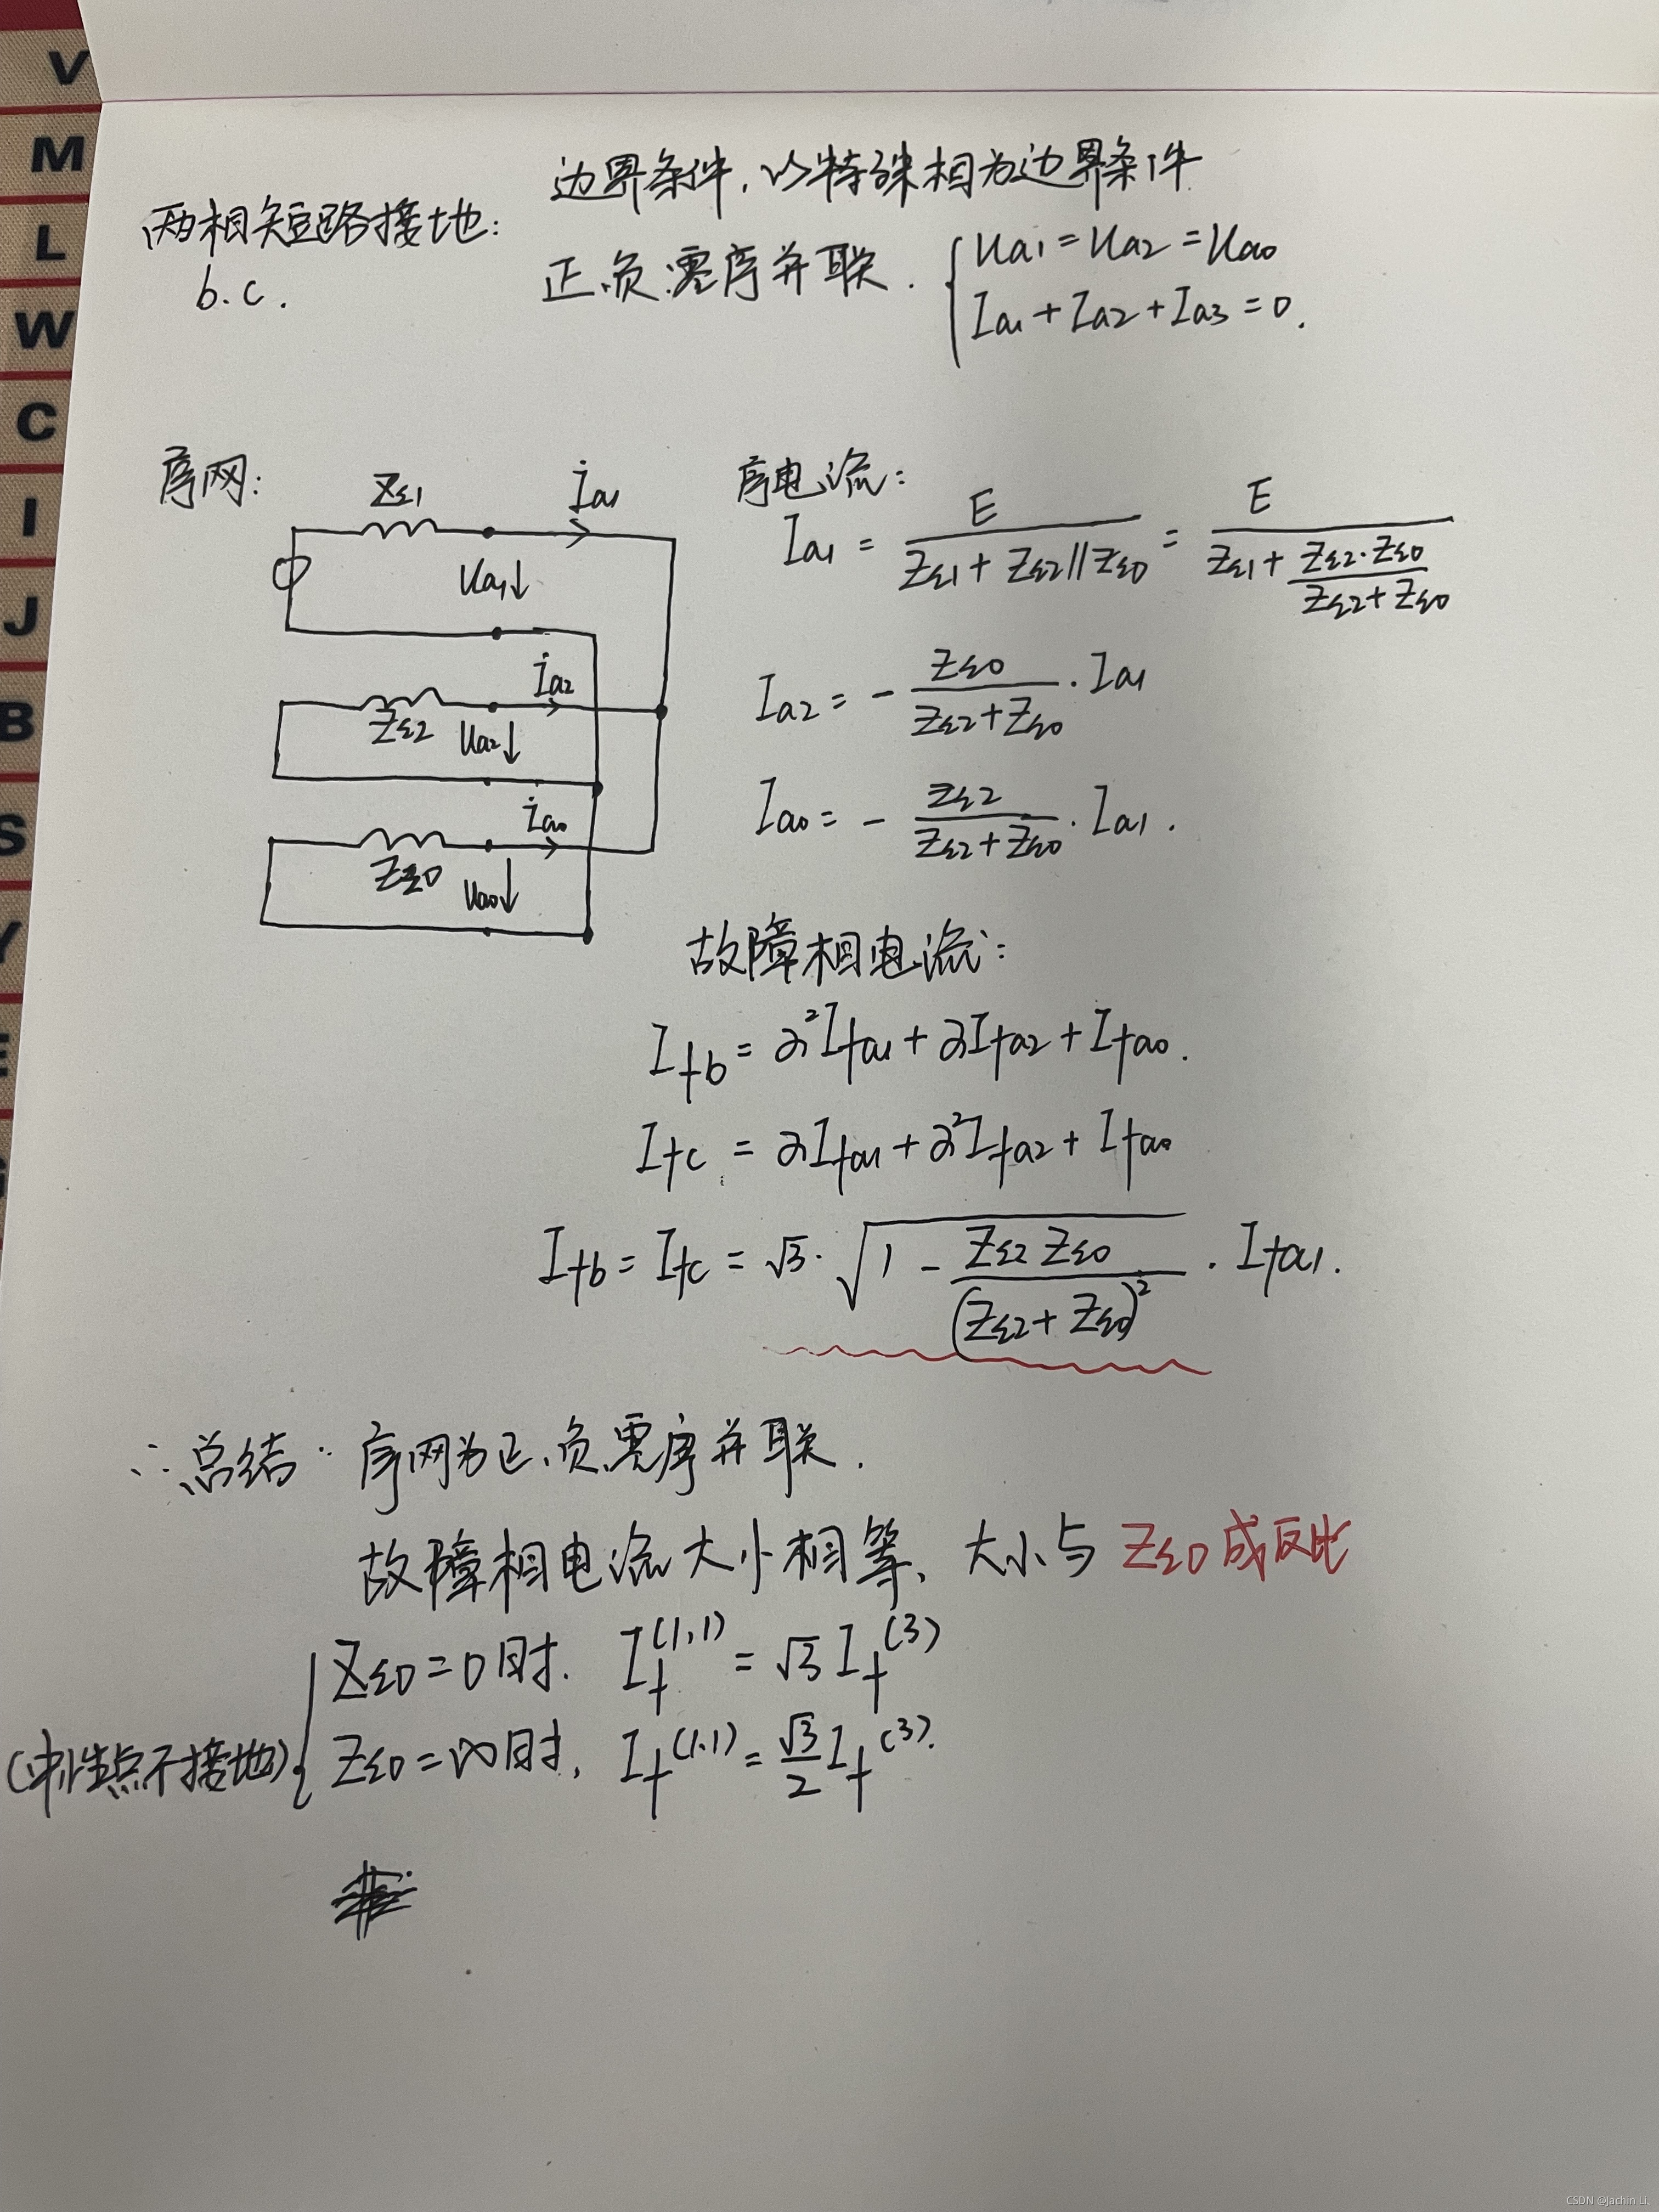 V
M
L
W
C
I
J
B
S
Y
E
两相短路接地:
b.c.
边界条件,以特殊相为边界条件
正、负、零序并联.
{ Ua1 = Ua2 = Ua0
Ia1 + Ia2 + Ia3 = 0.
序网:
ZΣ1
İa1
Ua1↓
İa2
ZΣ2
Ua2↓
İa0
ZΣ0
Ua0↓
序电流:
Ia1 = E / (ZΣ1 + ZΣ2 // ZΣ0) = E / (ZΣ1 + (ZΣ2·ZΣ0) / (ZΣ2 + ZΣ0))
Ia2 = - ZΣ0 / (ZΣ2 + ZΣ0) · Ia1
Ia0 = - ZΣ2 / (ZΣ2 + ZΣ0) · Ia1.
故障相电流:
Ifb = a²Ifa1 + aIfa2 + Ifa0.
Ifc = aIfa1 + a²Ifa2 + Ifa0
Ifb = Ifc = √3 · √(1 - ZΣ2 ZΣ0 / (ZΣ2 + ZΣ0)²) · Ifa1.
∴总结: 序网为正、负、零序并联.
故障相电流大小相等、大小与 ZΣ0 成反比
ZΣ0 = 0 时. If^(1,1) = √3 If^(3)
(中性点不接地) { ZΣ0 = ∞ 时, If^(1.1) = √3/2 If^(3).
CSDN @Jachin Li.